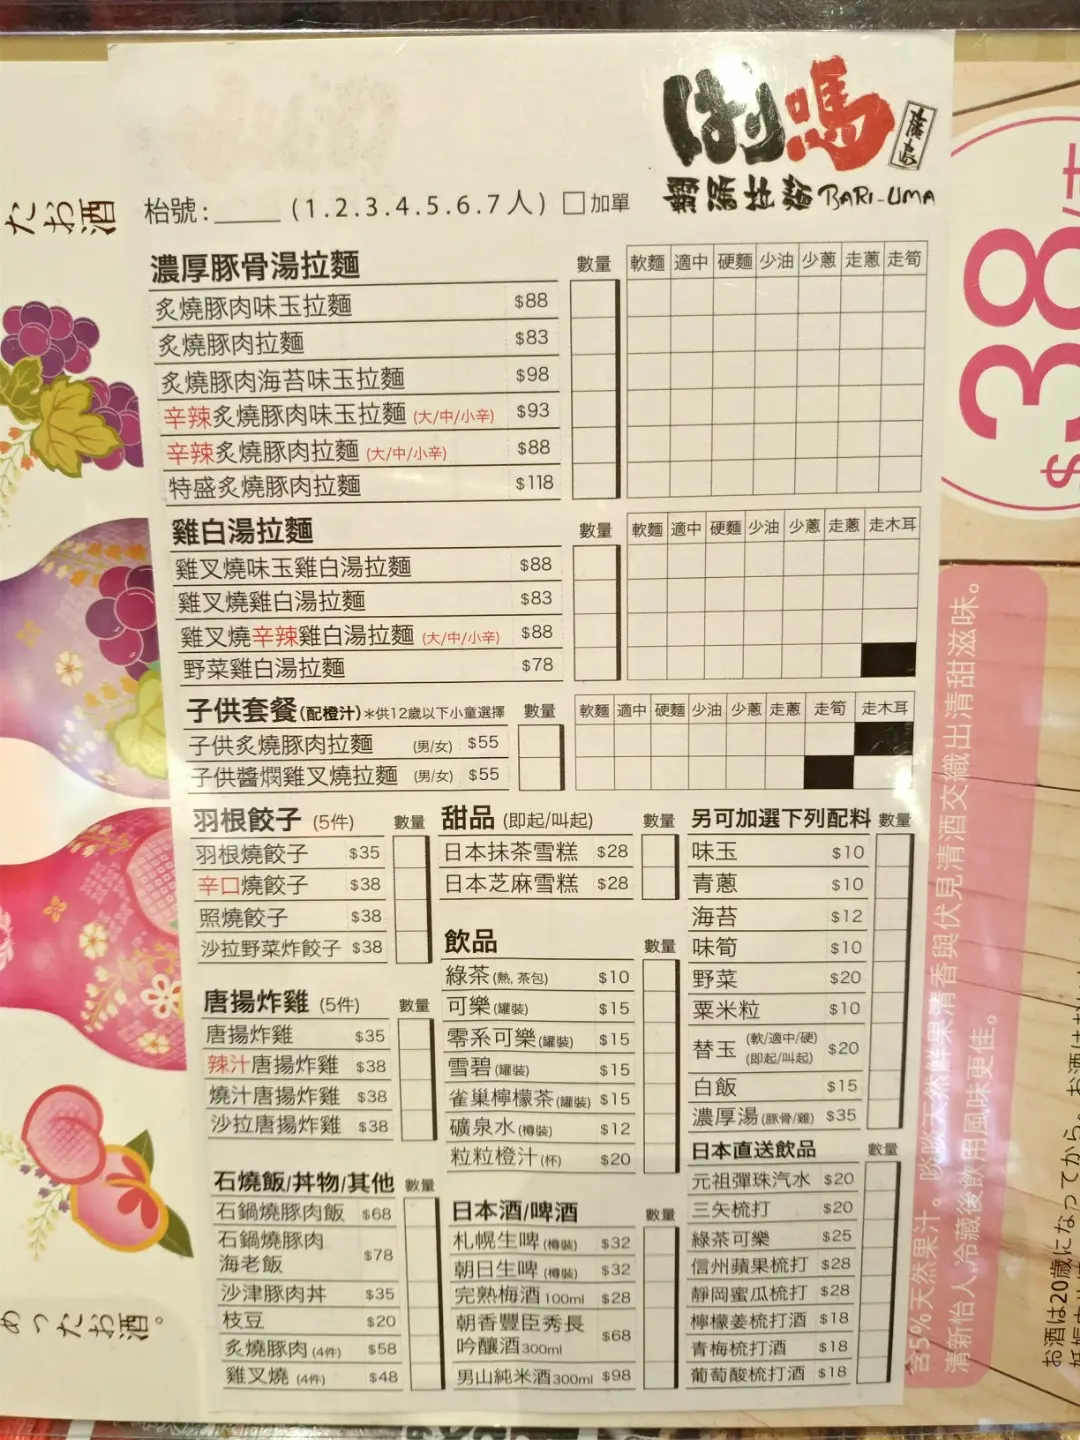 ばり馬
廣島
霸嗎拉麵 BARI-UMA
枱號:_____ (1.2.3.4.5.6.7人) □加單
濃厚豚骨湯拉麵 數量 軟麵 適中 硬麵 少油 少蔥 走蔥 走筍
炙燒豚肉味玉拉麵 $88
炙燒豚肉拉麵 $83
炙燒豚肉海苔味玉拉麵 $98
辛辣炙燒豚肉味玉拉麵 (大/中/小辛) $93
辛辣炙燒豚肉拉麵 (大/中/小辛) $88
特盛炙燒豚肉拉麵 $118
雞白湯拉麵 數量 軟麵 適中 硬麵 少油 少蔥 走蔥 走木耳
雞叉燒味玉雞白湯拉麵 $88
雞叉燒雞白湯拉麵 $83
雞叉燒辛辣雞白湯拉麵 (大/中/小辛) $88
野菜雞白湯拉麵 $78
子供套餐(配橙汁)*供12歲以下小童選擇 數量 軟麵 適中 硬麵 少油 少蔥 走蔥 走筍 走木耳
子供炙燒豚肉拉麵 (男/女) $55
子供醬燜雞叉燒拉麵 (男/女) $55
羽根餃子 (5件) 數量
羽根燒餃子 $35
辛口燒餃子 $38
照燒餃子 $38
沙拉野菜炸餃子 $38
唐揚炸雞 (5件) 數量
唐揚炸雞 $35
辣汁唐揚炸雞 $38
燒汁唐揚炸雞 $38
沙拉唐揚炸雞 $38
石燒飯/丼物/其他 數量
石鍋燒豚肉飯 $68
石鍋燒豚肉
海老飯 $78
沙津豚肉丼 $35
枝豆 $20
炙燒豚肉 (4件) $58
雞叉燒 (4件) $48
甜品 (即起/叫起) 數量
日本抹茶雪糕 $28
日本芝麻雪糕 $28
飲品 數量
綠茶(熱, 茶包) $10
可樂(罐裝) $15
零系可樂(罐裝) $15
雪碧(罐裝) $15
雀巢檸檬茶(罐裝) $15
礦泉水(樽裝) $12
粒粒橙汁(杯) $20
日本酒/啤酒 數量
札幌生啤(樽裝) $32
朝日生啤(樽裝) $32
完熟梅酒100ml $28
朝香豐臣秀長
吟釀酒300ml $68
男山純米酒300ml $98
另可加選下列配料 數量
味玉 $10
青蔥 $10
海苔 $12
味筍 $10
野菜 $20
粟米粒 $10
替玉 (軟/適中/硬) (即起/叫起) $20
白飯 $15
濃厚湯(豚骨/雞) $35
日本直送飲品 數量
元祖彈珠汽水 $20
三矢梳打 $20
綠茶可樂 $25
信州蘋果梳打 $28
靜岡蜜瓜梳打 $28
檸檬姜梳打酒 $18
青梅梳打酒 $18
葡萄酸梳打酒 $18
たお酒
めったお酒。
$38/
含5%天然果汁。啖啖天然鮮果清香與伏見清酒交織出清甜滋味。
清新怡人,冷藏後飲用風味更佳。
お酒は20歳になってから。